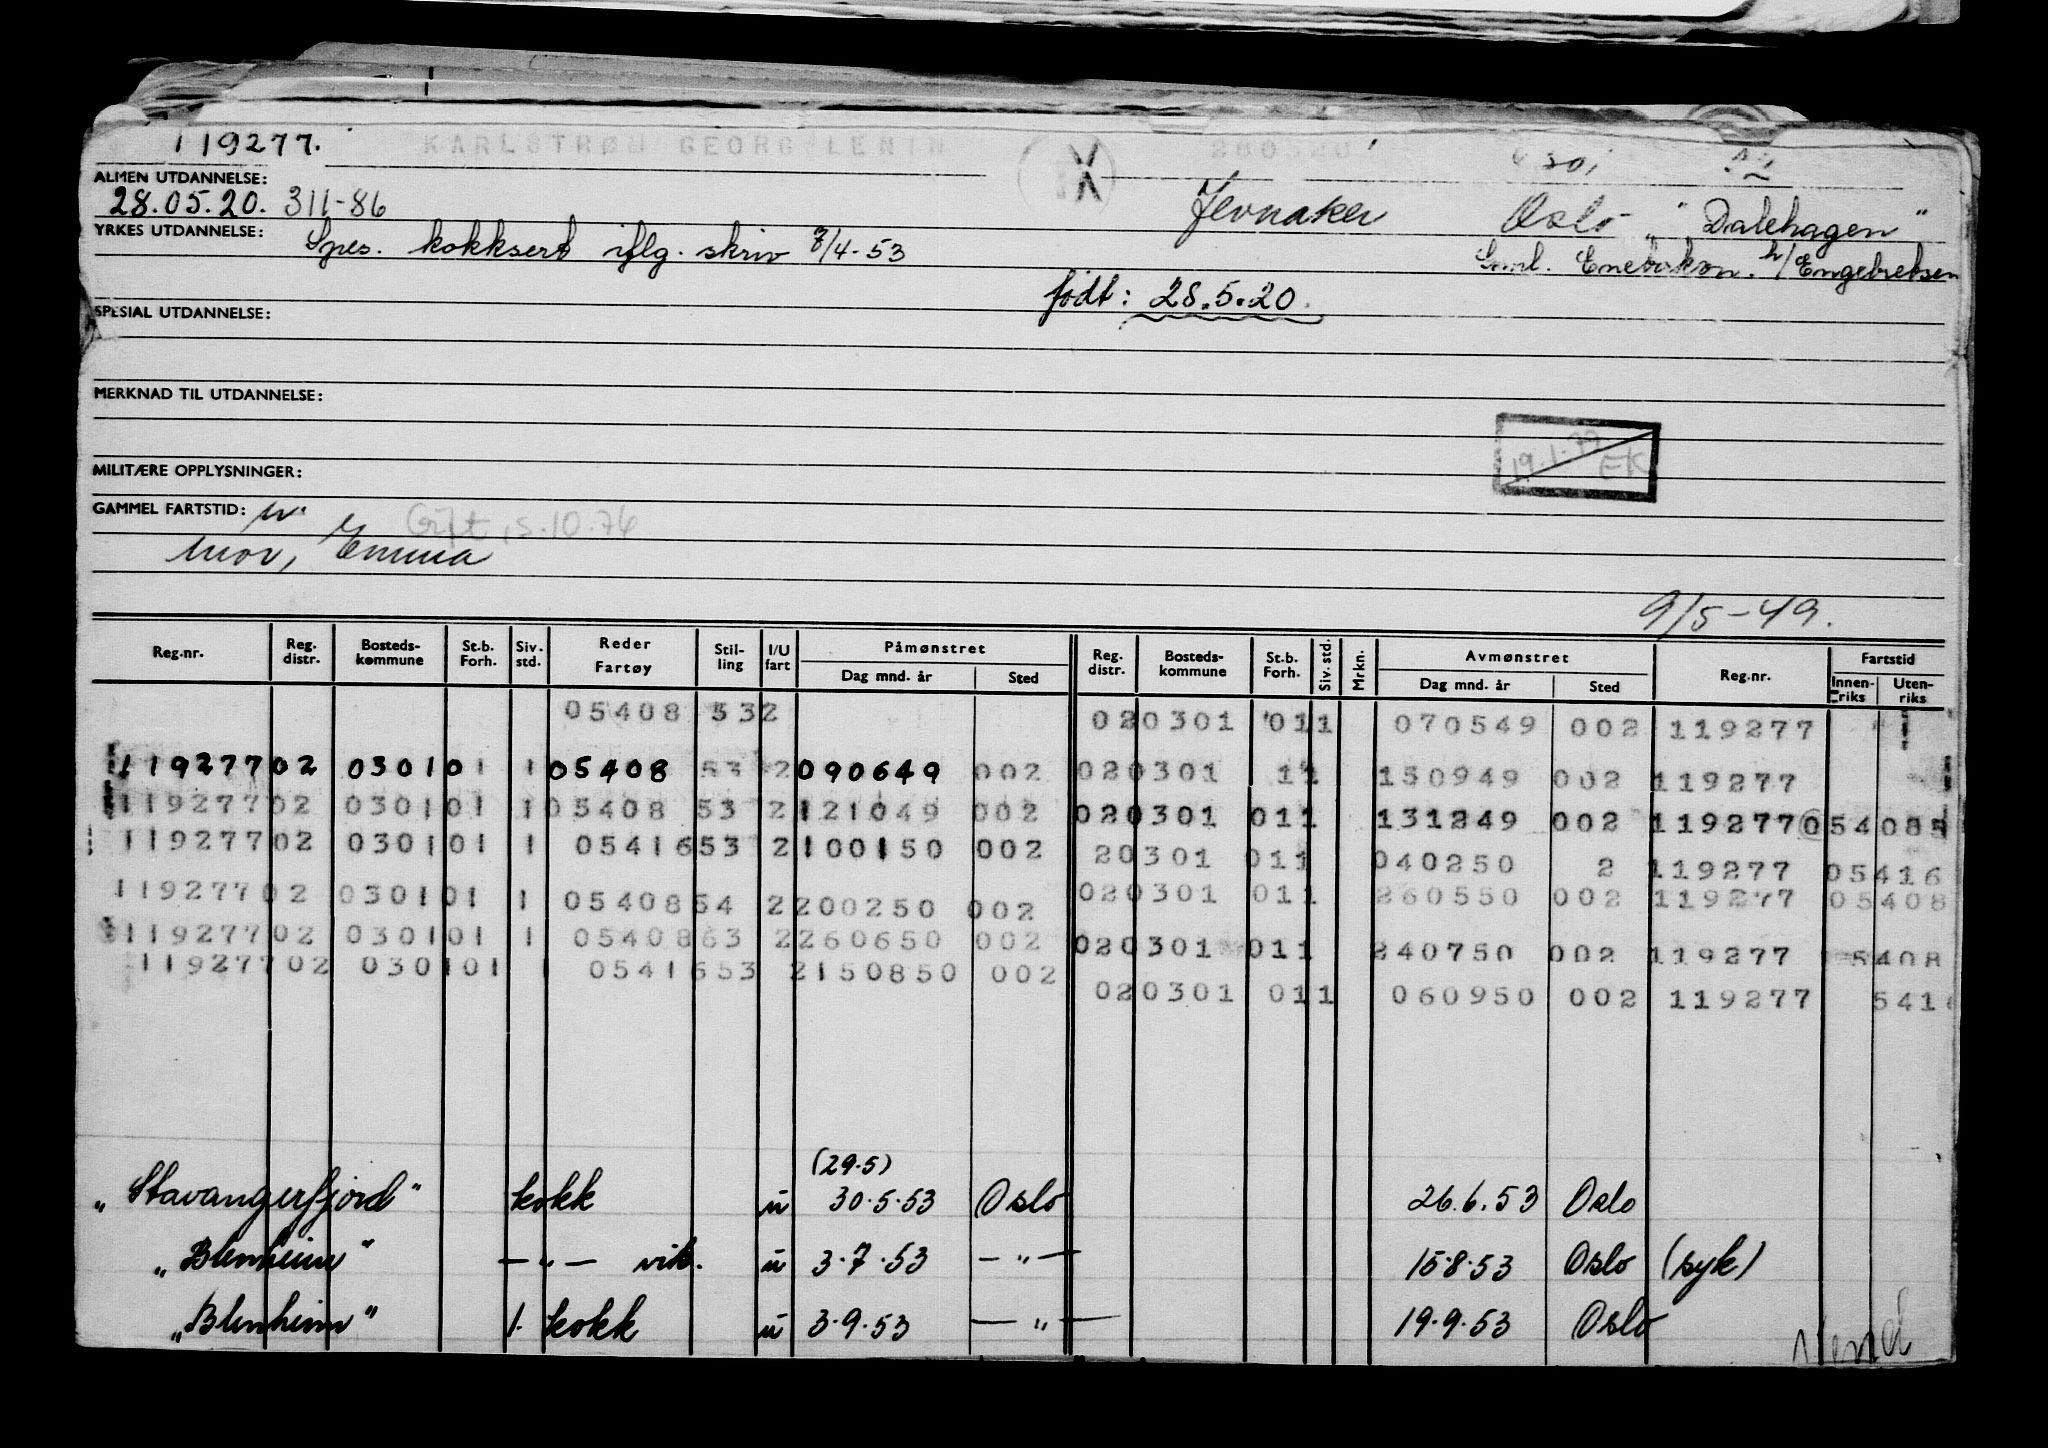 119277. KARLSTRØM GEORG LENIN 280520
ALMEN UTDANNELSE:
28.05.20. 311-86 Jevnaker Oslo „Dalehagen"
YRKES UTDANNELSE: Spes. kokksert iflg. skriv 7/4-53
Gml. Enebakkvn. h/Engebretsen
født: 28.5.20.
SPESIAL UTDANNELSE:
MERKNAD TIL UTDANNELSE:
19.1.79 EK
MILITÆRE OPPLYSNINGER:
GAMMEL FARTSTID: Gift, 5.10.76
mor, Emma
9/5-49.
Reg.nr. Reg. distr. Bosteds-kommune St.b. Forh. Siv. std. Reder Fartøy Stil-ling I/U fart Påmønstret Dag mnd. år Sted Reg. distr. Bosteds-kommune St.b. Forh. Siv. std. Mrkn. Avmønstret Dag mnd. år Sted Reg.nr. Fartstid Innen-riks Uten-riks
05408 532 020301 011 070549 002 119277
119277 02 030101 1 05408 53 2 090649 002 020301 11 150949 002 119277
119277 02 030101 1 05408 53 2 121049 002 020301 011 131249 002 119277 054085
119277 02 030101 1 05416 53 2 100150 002 20301 011 040250 2 119277 05416
119277 02 030101 1 05408 54 2 200250 002 020301 011 260550 002 119277 05408
119277 02 030101 1 05408 63 2 260650 002 020301 011 240750 002 119277 5408
119277 02 030101 1 05416 53 2 150850 002 020301 011 060950 002 119277 541
(29.5)
„Stavangerfjord" kokk u 30.5.53 Oslo 26.6.53 Oslo
„Blenheim" —"— vik. u 3.7.53 —"— 15.8.53 Oslo (syk)
„Blenheim" 1. kokk u 3.9.53 —"— 19.9.53 Oslo
Vend